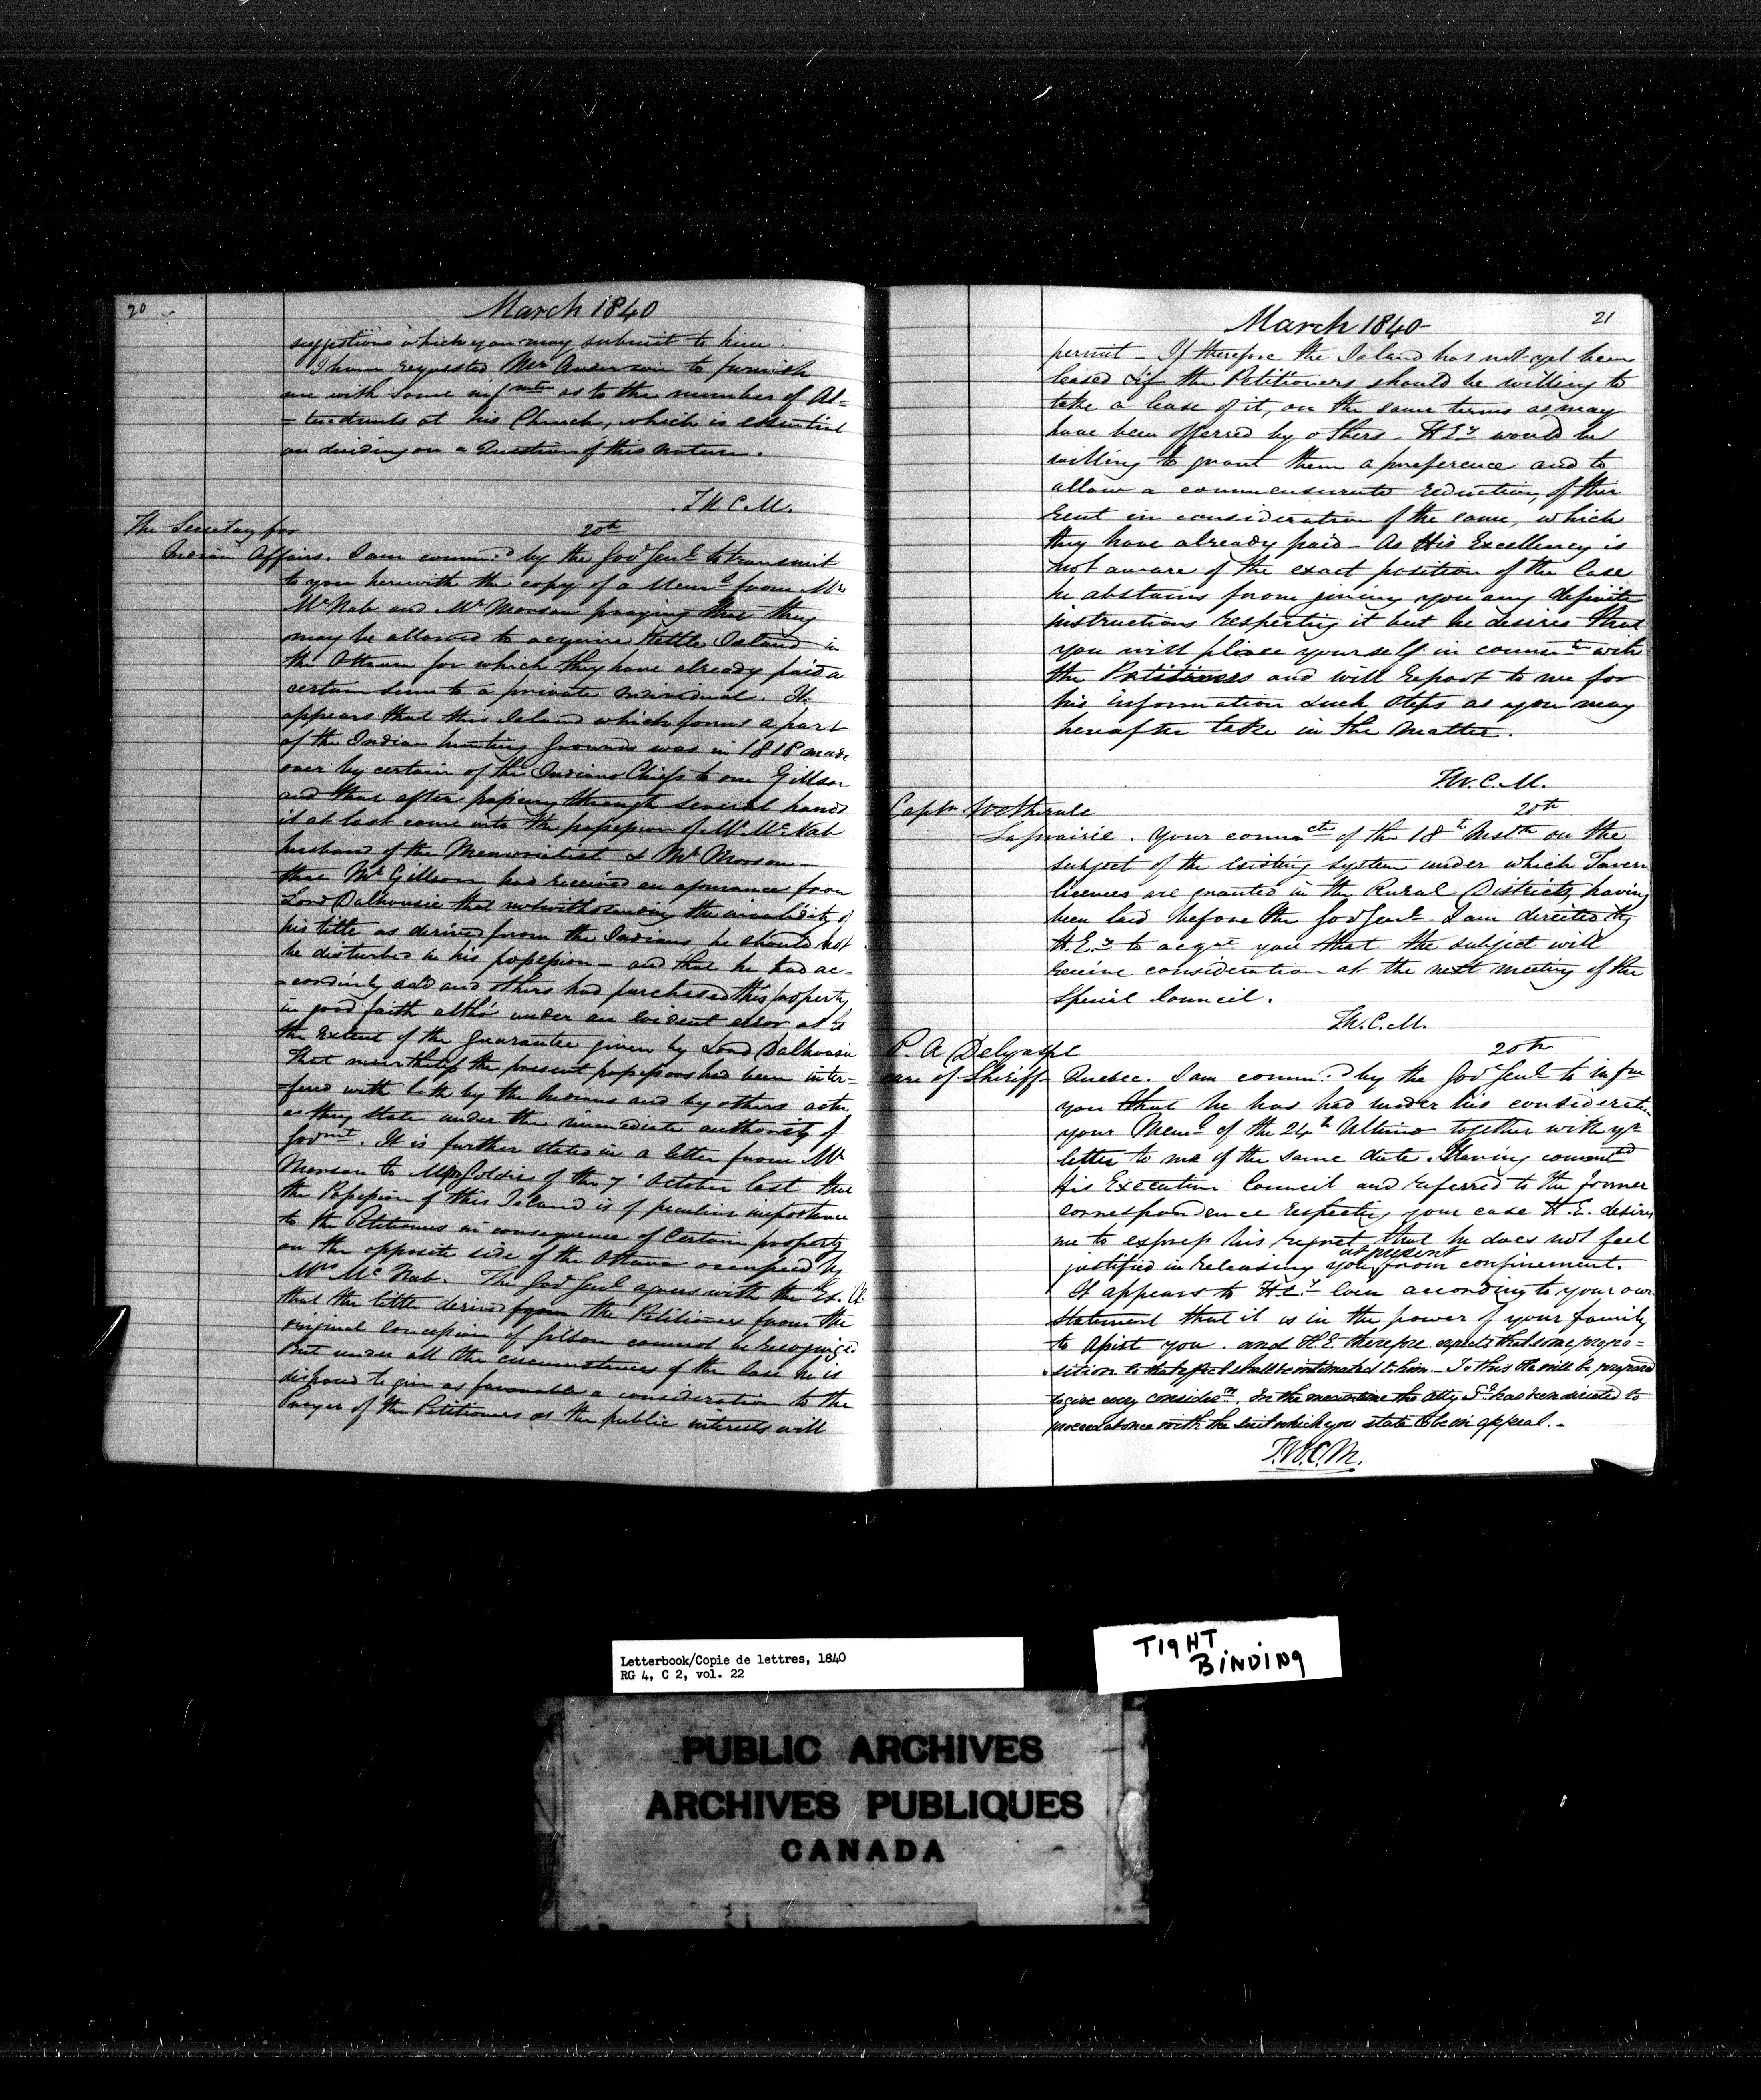 20
March 1840
suggestions which you may submit to him.
I have requested Mr Anderson to furnish
me with some infmation as to the number of At=
=tendants at his Church, which is essential
on deciding on a Question of this nature.
T.W.C.M.
The Secretary for
20th
Indian Affairs. I am commd by the Govr Genl to transmit
to you herewith the copy of a Meml from Mrs
McNab and Mr Morson praying that they
may be allowed to acquire Kettle Island in
the Ottawa for which they have already paid a
certain sum to a private individual. It
appears that this Island which forms a part
of the Indian hunting grounds was in 1818 made
over by certain of the Indians Chiefs to one Gillson
and that after passing through several hands
it at last came into the possession of Mr McNab
husband of the Memorialist & Mr Morson—
that Mr Gillson had received an assurance from
Lord Dalhousie that notwithstanding the invalidity of
his title as derived from the Indians, he should not
be disturbed in his possession — and that he had ac=
=cordinly sold and others had purchased this property
in good faith altho' under an evident error as to
the extent of the guarantee given by Lord Dalhousie
That nevertheless the present possessors had been inter=
=fered with both by the Indians and by others acting
as they state under the immediate authority of
Govmnt. It is further stated in a letter from Mr
Morson to Major Goldie of the 7' October last that
the Possession of this Island is of peculiar importance
to the Petitioners in consequence of Certain property
on the opposite side of the Ottawa occupied by
Mrs McNab. The Govr Genl agrees with the Ex. Cl
that the title derived from the Petitioners from the
original Concession of Gilson cannot be recognized
But under all the circumstances of the case he is
disposed to give as favorable a consideration to the
Prayer of the Petitioners as the public interests will
March 1840
21
permit — If therefore the Island has not yet been
leased & if the Petitioners should be willing to
take a lease of it, on the same terms as may
have been offerred by others — H Ey would be
willing to grant them a preference and to
allow a commensurate reduction, of their
Rent in consideration of the same, which
they have already paid — As His Excellency is
not aware of the exact position of the Case
he abstains from giving you any definite
instructions respecting it but he desires that
you will place yourself in commn with
the Petitioners and will Report to me for
his information such steps as you may
hereafter take in the matter.
T.W.C.M.
Captn Wetherall
20th
Laprairie. Your commn of the 18th Inst on the
subject of the existing system under which Tavern
licences are granted in the Rural Districts, having
been laid before the Govr Genl — I am directed by
H.Ey to acqnt you that the subject will
receive consideration at the next meeting of the
Special Council.
T.W.C.M.
P. A Delgaspe
20th
care of Sheriff— Quebec. I am commd by the Govr Genl to infm
you that he has had under his consideration
your Meml of the 24th Ultimo together with yr
letter to me of the same date. Having consulted
His Executive Council and referred to the former
correspondence respecting your case H.E. desires
me to express his regret, that he does not feel
at present
justified in releasing you from confinement.
It appears to H Ey even according to your own
statement that it is in the power of your family
to Assist you. and H.E. therefore expects that some propo=
sition to that effect shall be intimated to him — To this He will be prepared
to give every consideron. In the meantime the Atty Gl has been directed to
proceed at once with the suit which you state to be in appeal. —
T.W.C.M.
Letterbook/Copie de lettres, 1840
RG 4, C 2, vol. 22
TIGHT
BINDING
PUBLIC ARCHIVES
ARCHIVES PUBLIQUES
CANADA